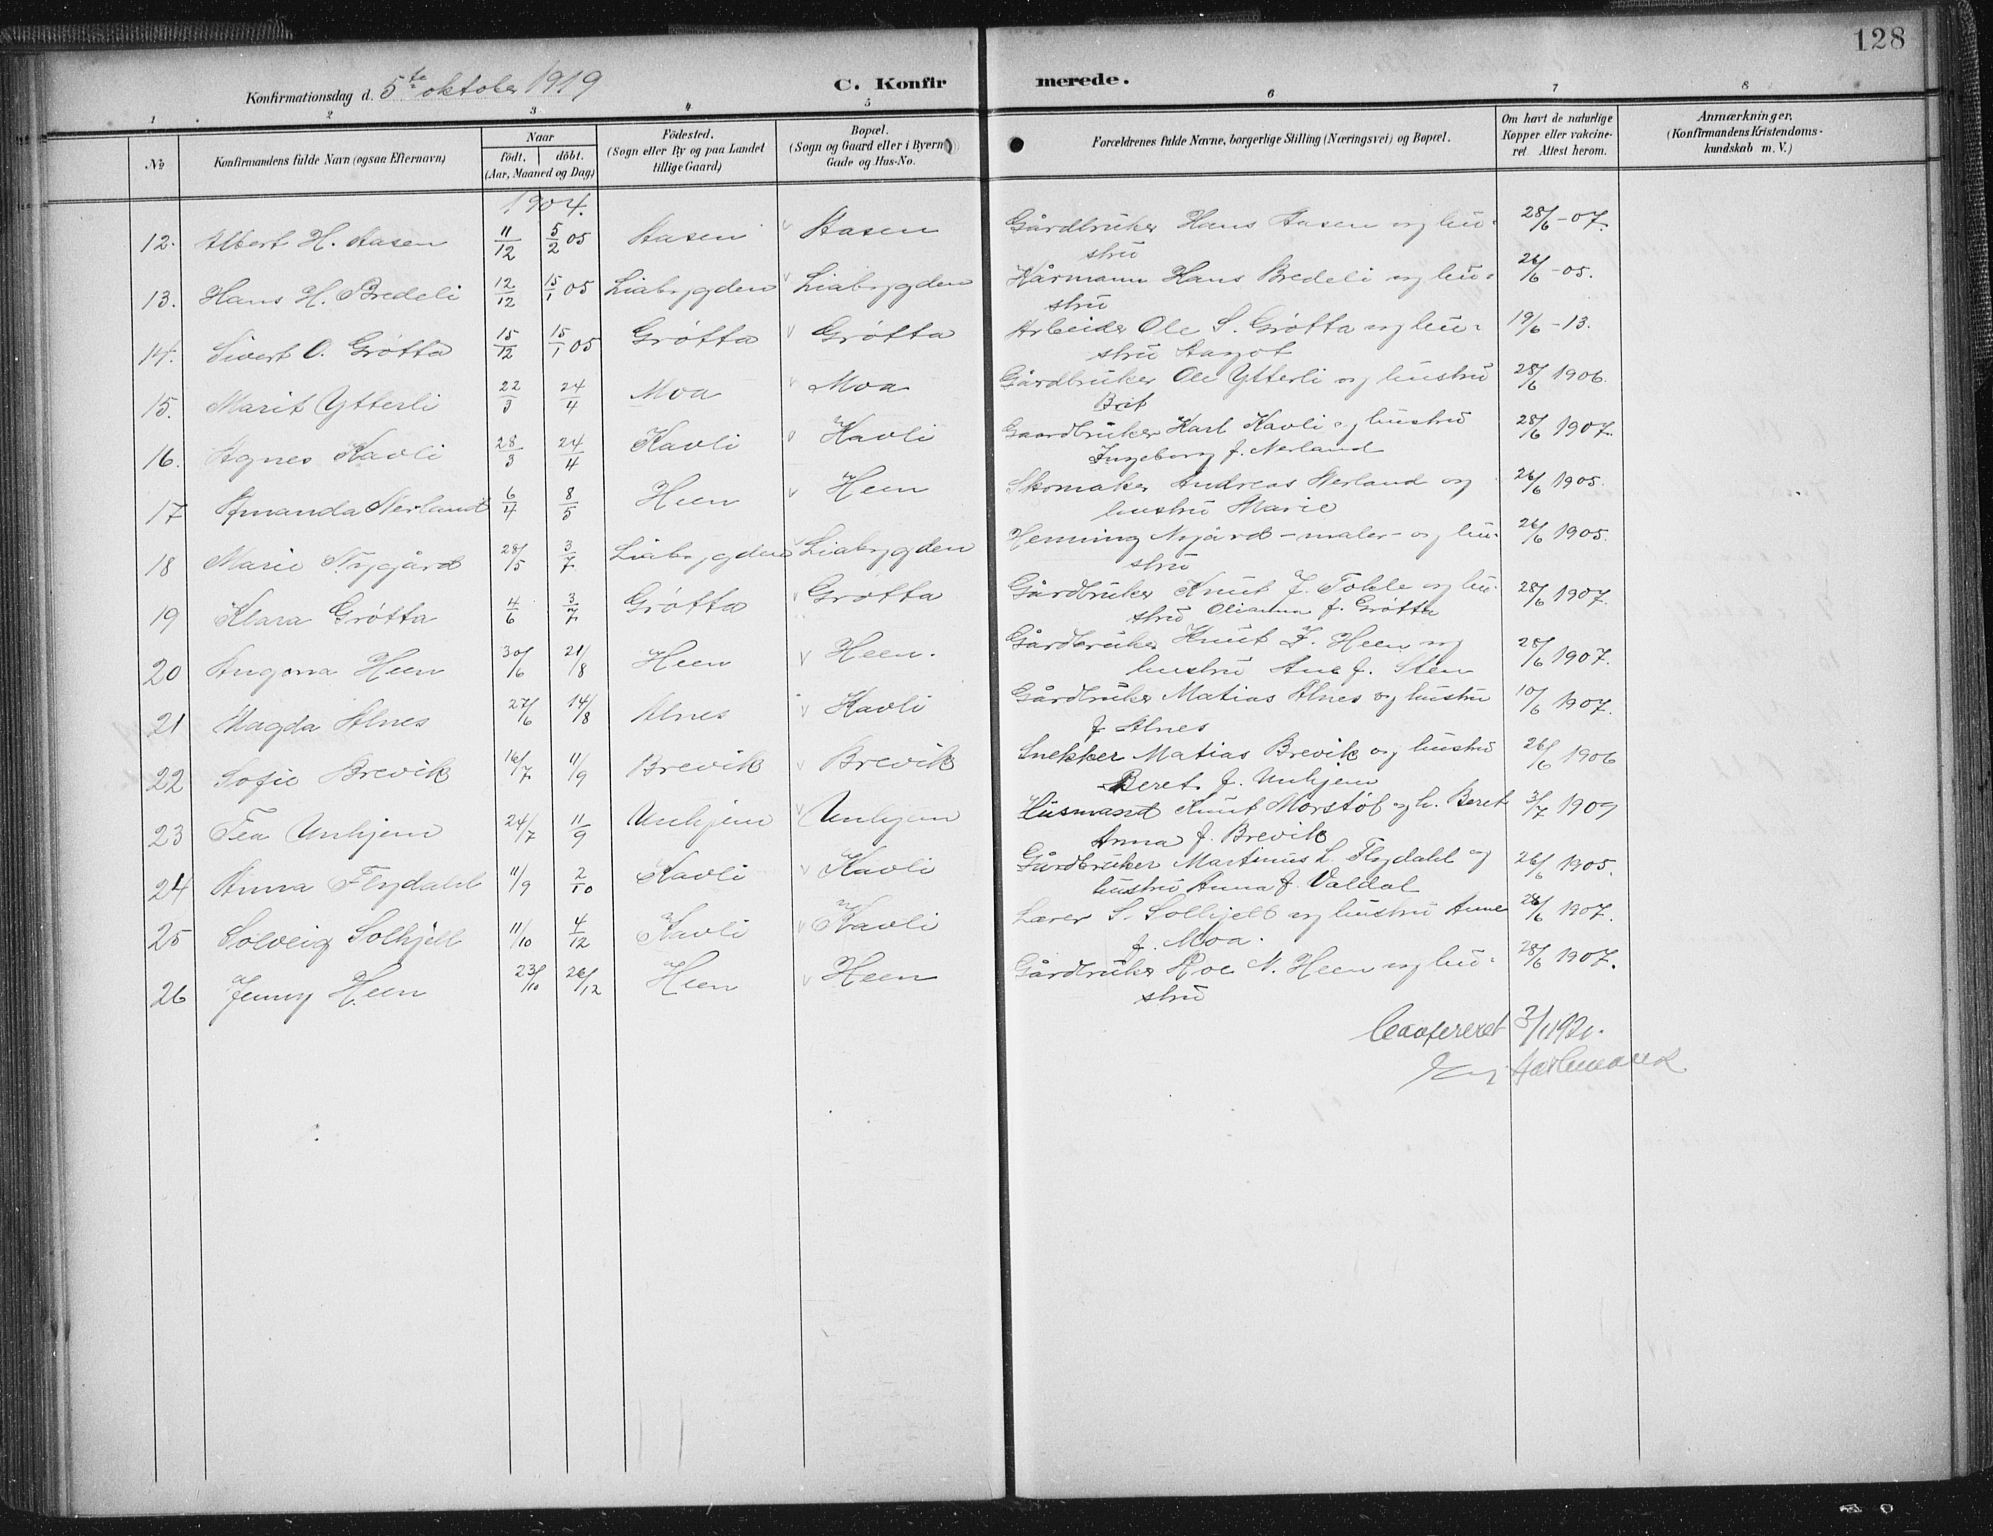 128
Konfirmationsdag d. 5te oktober 1919
C. Konfir merede.
1 2 3 4 5 6 7 8
No
Konfirmandens fulde Navn (ogsaa Efternavn)
Naar
födt. döbt.
(Aar, Maaned og Dag)
Födested.
(Sogn eller By og paa Landet
tillige Gaard)
Bopæl.
(Sogn og Gaard eller i Byern
Gade og Hus-No.
Forældrenes fulde Navne, borgerlige Stilling (Næringsvei) og Bopæl.
Om havt de naturlige
Kopper eller vakcine-
ret Attest herom.
Anmærkninger.
(Konfirmandens Kristendoms-
kundskab m. V.)
1904.
12. Albert H. Aasen 11/12 5/2 05 Aasen Aasen Gårdbruker Hans Aasen og hu- 28/6-07.
stru
13. Hans H. Bredeli 12/12 15/1 05 Liabygden Liabygden Kårmann Hans Bredeli og hu- 26/6-05.
stru
14. Sivert O. Grötta 15/12 15/1 05 Grötta Grötta Arbeider Ole S. Grötta og hu- 19/6-13.
stru Aagot
15. Marit Ytterli 22/3 24/4 Moa Moa Gårdbruker Ole Ytterli og hustru 28/6 1906.
Brit
16. Agnes Kavli 28/3 24/4 Kavli Kavli Gaardbruker Karl Kavli og hustru 28/6 1907.
Ingeborg f. Nerland
17 Amanda Nerland 6/4 8/5 Heen Heen Skomaker Andreas Nerland og 26/6 1905.
hustru Marie
18 Marie Nygård 28/5 3/7 Liabygden Liabygden Henning Nygård - maler - og hu- 26/6 1905.
stru
19 Klara Grötta 4/6 3/7 Grötta Grötta Gårdbruker Knut J. Tokle og hu- 28/6 1907.
stru Olianna f. Grötta
20 Angona Heen 30/6 21/8 Heen Heen. Gårdbruker Knut I. Heen og 28/6 1907.
hustru Ane f. Sten
21 Magda Alnes 27/6 14/8 Alnes Kavli Gårdbruker Matias Alnes og hustru 10/6 1907.
f Alnes
22 Sofie Brevik 16/7 11/9 Brevik Brevik Snekker Matias Brevik og hustru 26/6 1906
Beret f. Unhjem
23 Tea Unhjem 24/7 11/9 Unhjem Unhjem Husmand Knut Morstöl og h. Beret 3/7 1909
Anna f. Brevik
24 Anna Flydahl 11/9 2/10 Kavli Kavli Gårdbruker Martinus L. Flydahl og 26/6 1905.
hustru Anna f. Valdal
25 Solveig Solhjell 11/10 4/12 Kavli Kavli Lærer S. Solhjell og hustru Anne 28/6 1907.
f. Moa.
26 Jenny Heen 23/10 26/12 Heen Heen Gårdbruker Roe N. Heen og hu- 28/6 1907.
stru